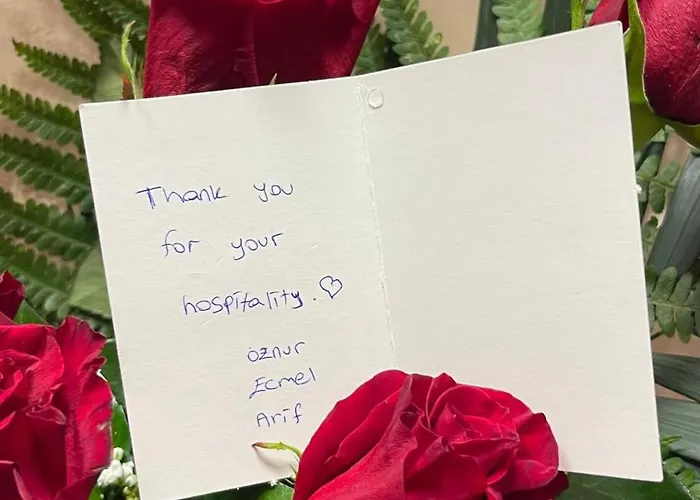 Thank you
for your
hospitality. ♡
Öznur
Ecmel
Arif